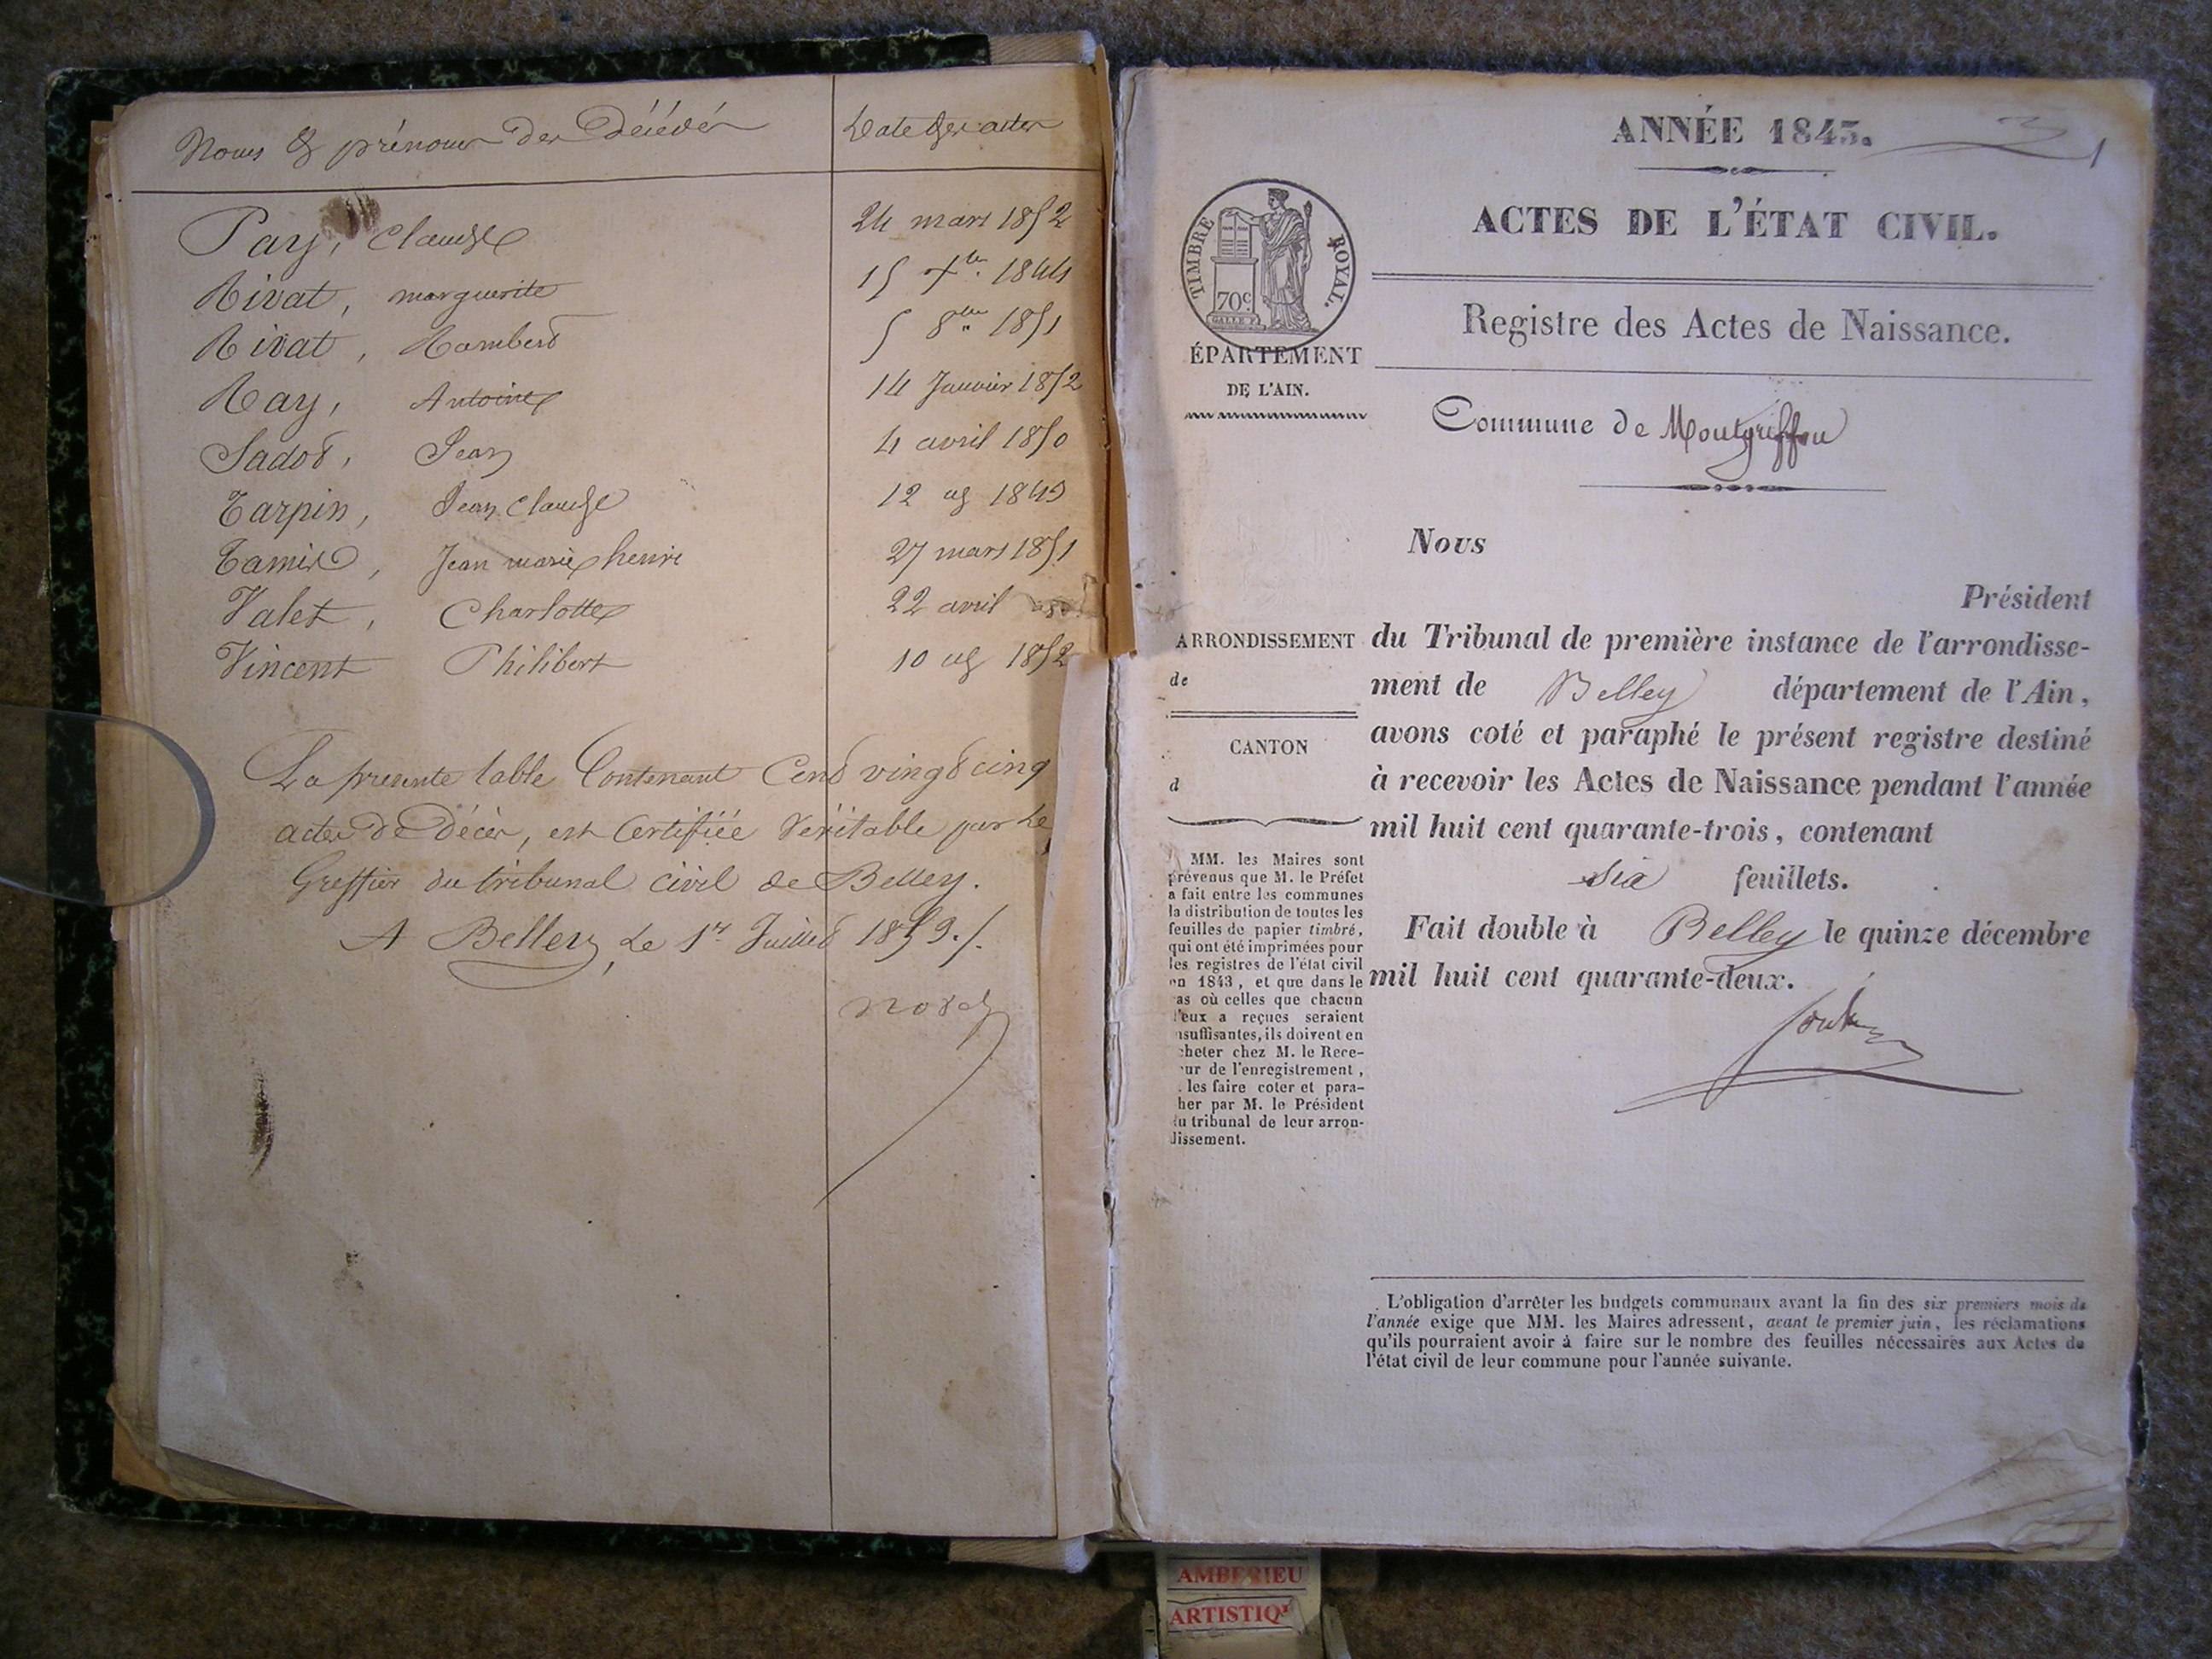 Noms & prénoms des Décédés
Date des actes
Pay, Claude 24 mars 1852
Rivat, marguerite 15 7bre 1844
Rivat, Rambert 5 8bre 1851
Ray, Antoine 14 Janvier 1852
Sadod, Jean 4 avril 1850
Tarpin, Jean Claude 12 1849
Jean marie henri 27 mars 1851
Valet, Charlotte 22 avril
Vincent Philibert 10 1852
La presente table Contenant Cent vingt cinq
actes de Décès, est Certifiée Véritable par Le
Greffier du tribunal civil de Belley.
A Belley, Le 1er Juillet 1859./.
ANNÉE 1843.
ACTES DE L'ÉTAT CIVIL.
TIMBRE ROYAL.
70c
Registre des Actes de Naissance.
ÉPARTEMENT
DE L'AIN.
Commune de Montgriffon
Nous
Président
ARRONDISSEMENT
de
CANTON
d
du Tribunal de première instance de l'arrondisse-
ment de Belley département de l'Ain,
avons coté et paraphé le présent registre destiné
à recevoir les Actes de Naissance pendant l'année
mil huit cent quarante-trois, contenant
six feuillets.
Fait double à Belley le quinze décembre
mil huit cent quarante-deux.
MM. les Maires sont
prévenus que M. le Préfet
a fait entre les communes
la distribution de toutes les
feuilles de papier timbré,
qui ont été imprimées pour
les registres de l'état civil
en 1843, et que dans le
as où celles que chacun
d'eux a reçues seraient
nsuffisantes, ils doivent en
cheter chez M. le Rece-
ur de l'enregistrement,
les faire coter et para-
her par M. le Président
du tribunal de leur arron-
dissement.
L'obligation d'arrêter les budgets communaux avant la fin des six premiers mois de
l'année exige que MM. les Maires adressent, avant le premier juin, les réclamations
qu'ils pourraient avoir à faire sur le nombre des feuilles nécessaires aux Actes de
l'état civil de leur commune pour l'année suivante.
AMBERIEU
ARTISTIQ